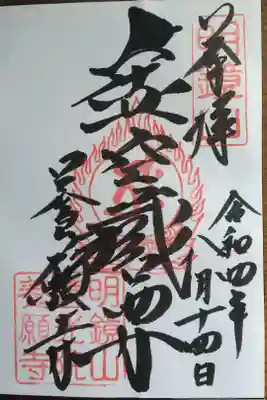 奉拝
明鏡山
令和四年
八月十四日
虚空蔵
善願寺
明鏡山
善願寺